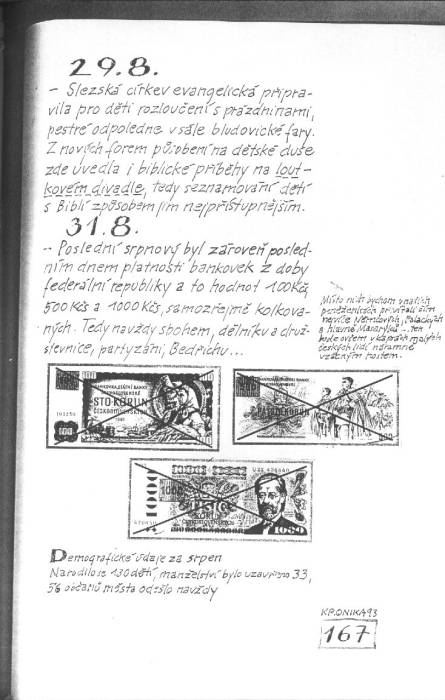 29.8.
– Slezská církev evangelická připra-
vila pro děti rozloučení s prázdninami,
pestré odpoledne v sále bludovické fary.
Z nových forem působení na dětské duše
zde uvedla i biblické příběhy na lout-
kovém divadle, tedy seznamování dětí
s Biblí způsobem jim nejpřístupnějším.
31.8.
– Poslední srpnový byl zároveň posled-
ním dnem platnosti bankovek z doby
federální republiky a to hodnot 100Kčs,
500Kčs a 1000Kčs, samozřejmě kolkova-
ných. Tedy navždy sbohem, dělníku a druž-
stevnice, partyzáni, Bedřichu...
Místo nich bychom v našich
peněženkách přivítali
Němcových, Palackých
a hlavně Masaryků ... ten
bude ovšem v kapsách malých
českých lidí nesmírně
vzácným hostem.
100
STO KORUN
ČESKOSLOVENSKÝCH
100
PĚTSET KORUN
500
1000
U28 426640
1000
TISÍC
KORUN
ČESKOSLOVENSKÝCH
1000
Demografické údaje za srpen
Narodilo se 130 dětí, manželství bylo uzavřeno 33,
56 občanů města odešlo navždy
KRONIKA 93
167